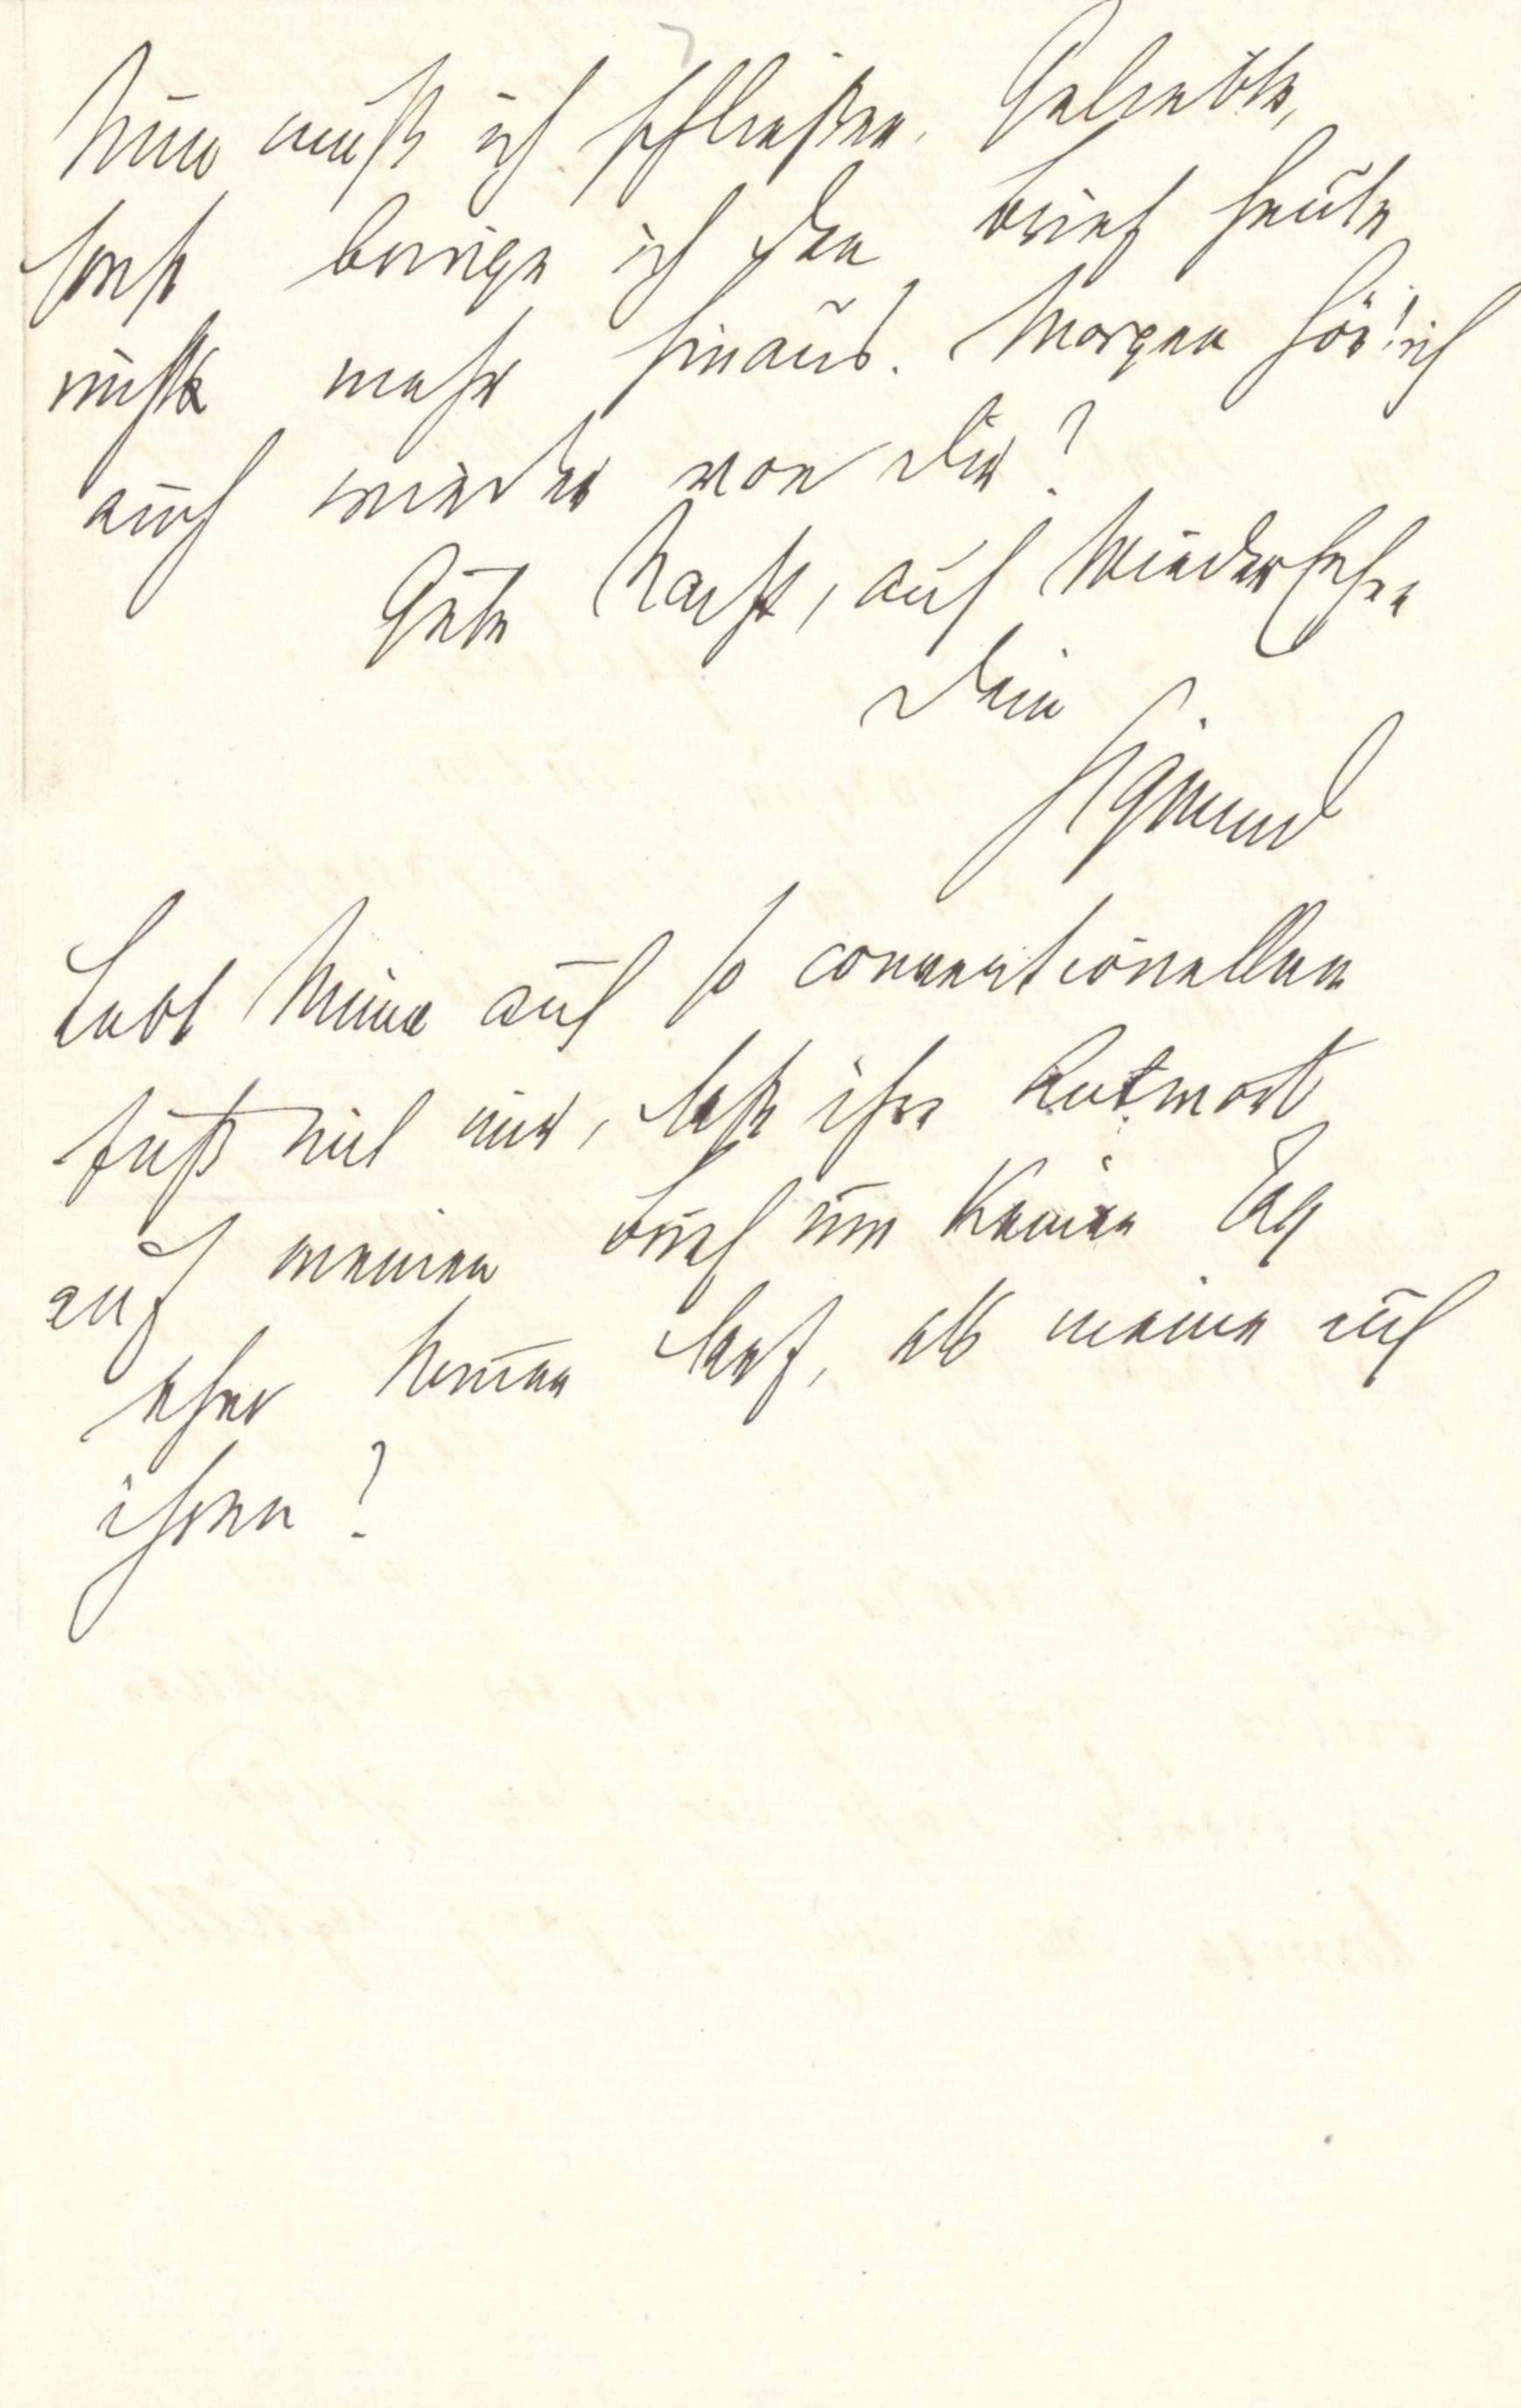 Nun muß ich schließen, Geliebte,
sonst bringe ich den Brief heute
nicht mehr hinaus. Morgen hör' ich
auch wieder von Dir?
Gute Nacht, auf Wiedersehen
Dein
Sigmund
Lebt Minna auf so conventionellem
Fuß mit mir, daß ihre Antwort
auf meinen Brief um keinen Tag
eher kommen darf, als meine auf
ihren?